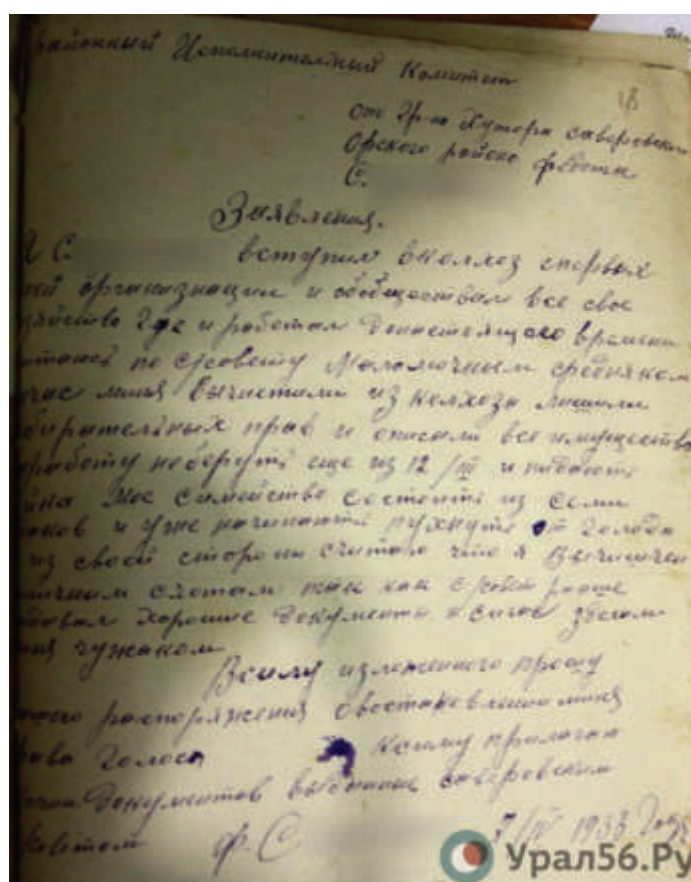 районный Исполнительный Комитет
18
от гр-на Хутора саверовского
Орского района
С.
Заявления.
С. вступил вколхоз спервых
ней организации и обобществил все свое
зяйство где и работал донастоящего времени
по с/совету Маломочным средняком
час миня Вычистили из колхоза лишили
бирательных прав и описали все имущество
работу неберуть еще из 12/III и
Мое Семейство состоить из семи
и уже начинають пухнуть от голода
из свой стороны считаю что я Вычищен
личным счотам так как с/совет раше
хорошие Документы а сичас
чужаком
Всиму изложенного прошу
шего распоряжения овостановлении миня
рава Голоса Ксиму прилагаю
Документов выданные саверовским
Ф. С
7/IV 1933 Года
Урал56.Ру